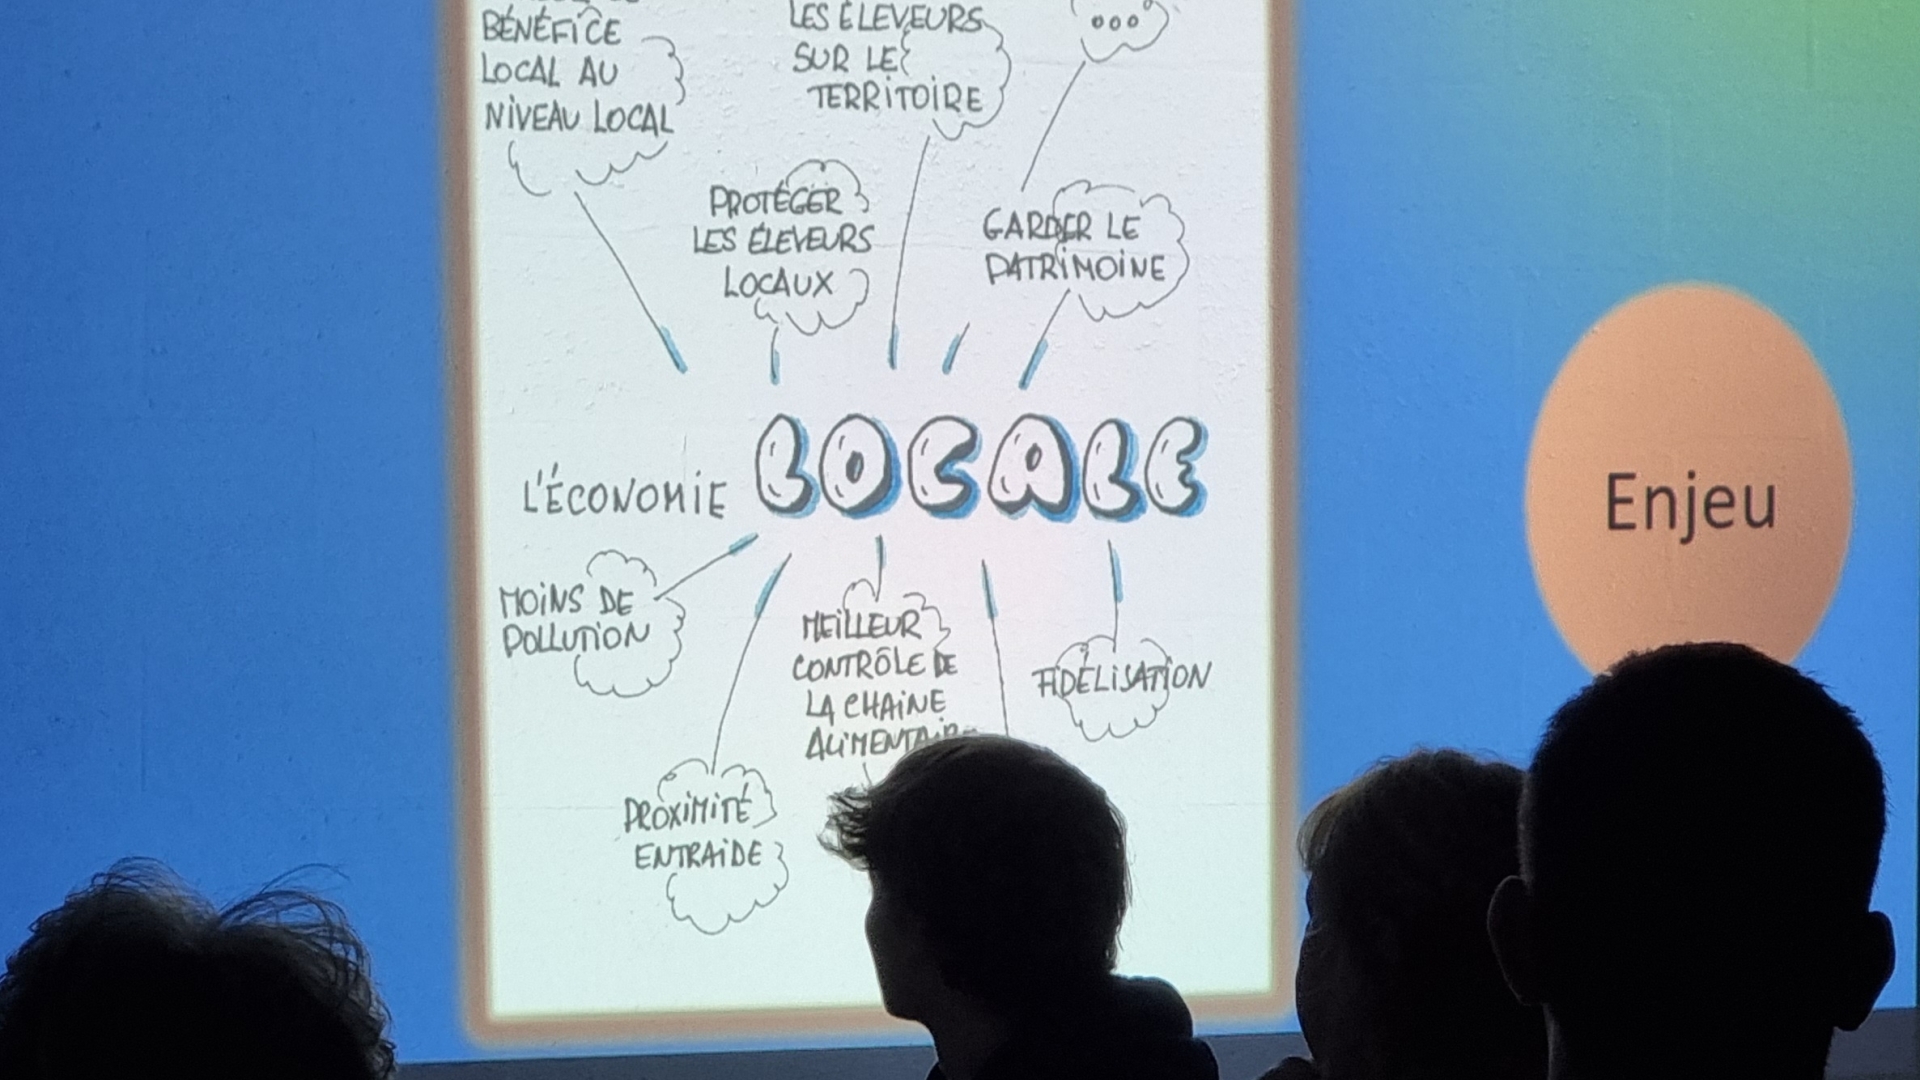 BÉNÉFICE
LOCAL AU
NIVEAU LOCAL
LES ÉLEVEURS
SUR LE
TERRITOIRE
...
PROTÉGER
LES ÉLEVEURS
LOCAUX
GARDER LE
PATRIMOINE
L'ÉCONOMIE LOCALE
Enjeu
MOINS DE
POLLUTION
MEILLEUR
CONTRÔLE DE
LA CHAINE
FIDÉLISATION
PROXIMITÉ
ENTRAIDE